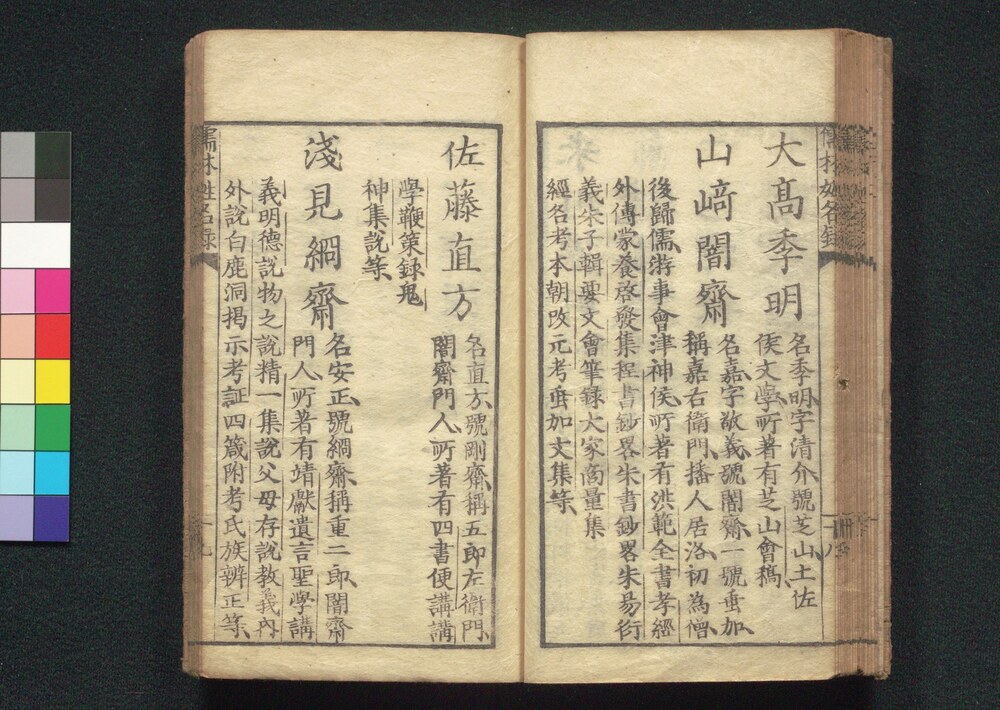 大髙季明
名季明字清介號芝山土佐
侯文學所著有芝山會稿
山﨑闇齋
名嘉字敬義號闇齋一號垂加
稱嘉右衛門播人居洛初為僧
後歸儒游事會津神侯所著有洪範全書孝經
外傳蒙養啓發集程書鈔畧朱書鈔畧朱易衍
義朱子輯要文會筆録大家商量集
經名考本朝改元考垂加文集等
佐藤直方
名直方號剛齋稱五郎左衛門
闇齋門人所著有四書便講講
學鞭策録鬼
神集說等
淺見絅齋
名安正號絅齋稱重二郎闇齋
門人所著有靖獻遺言聖學講
義明德說物之說精一集說父母存說敬義內
外說白鹿洞掲示考証四箴附考氏族辨正等
儒林姓名録
儒林姓名録
八
九